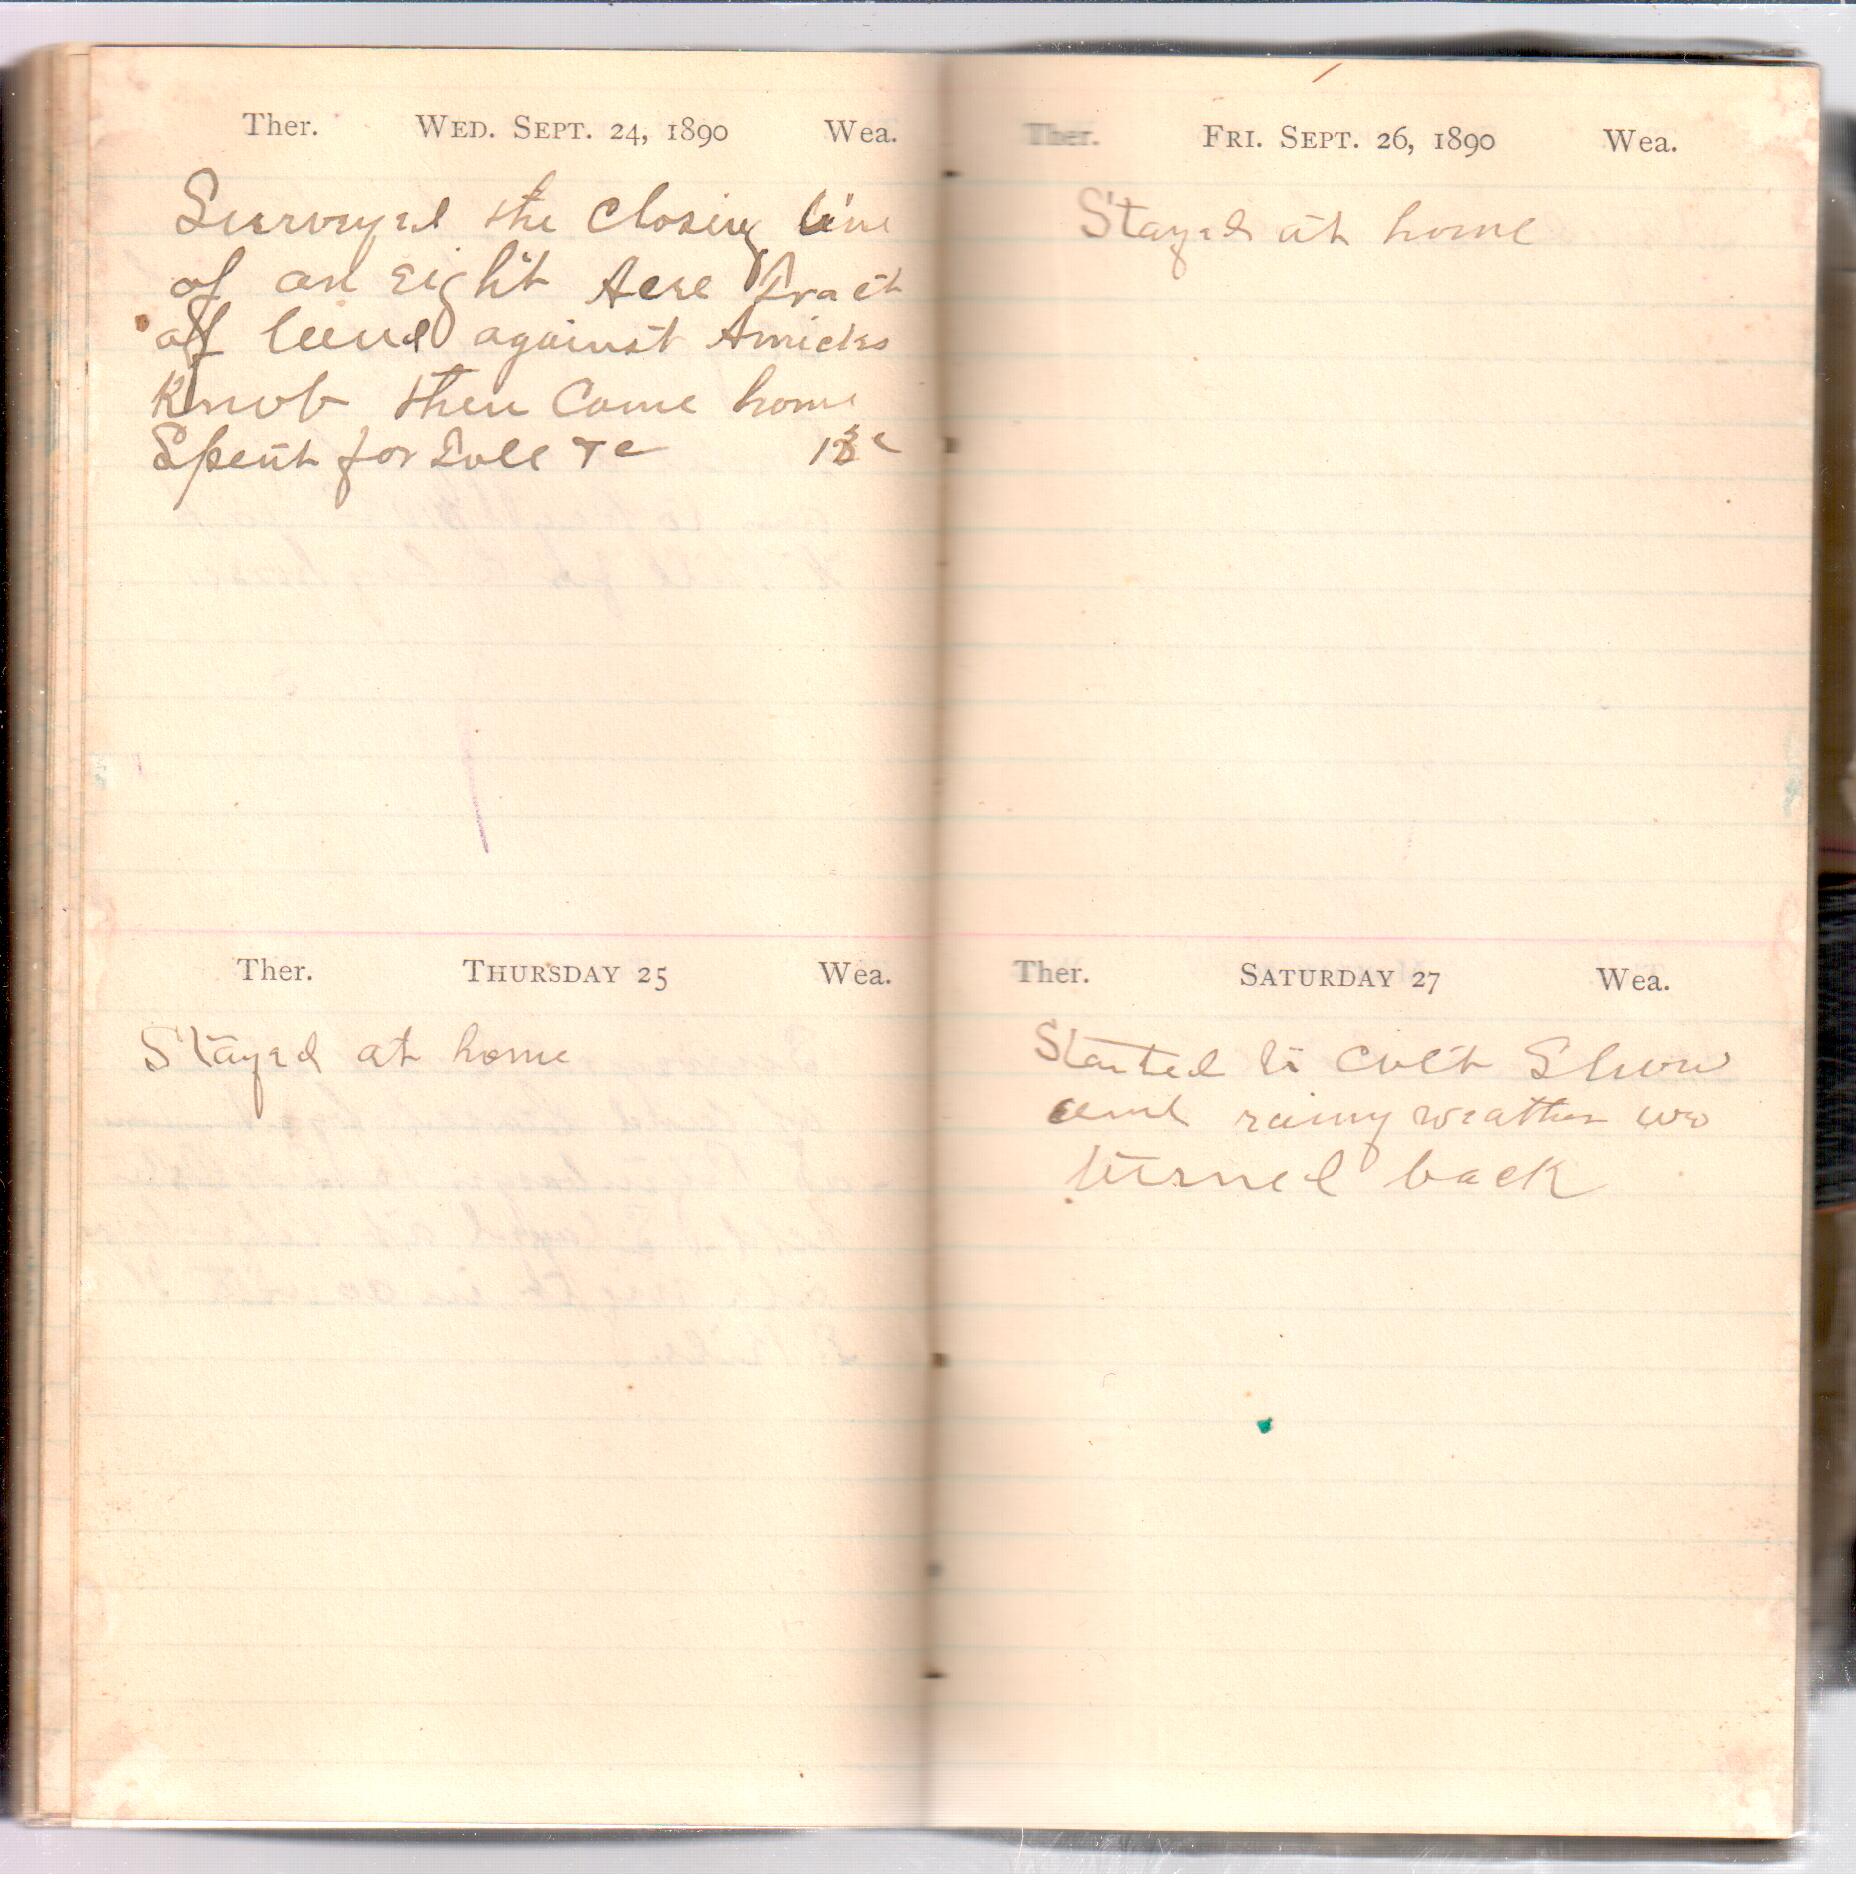 Ther. WED. SEPT. 24, 1890 Wea.
Surveyed the Closing line
of an Eight Acre Tract
off land against Amicks
Knob then Came home
Spent for Toll &c
Ther. THURSDAY 25 Wea.
Stayed at home
Ther. FRI. SEPT. 26, 1890 Wea.
Stayed at home
Ther. SATURDAY 27 Wea.
Started to Colt Show
and rainy weather we
turned back